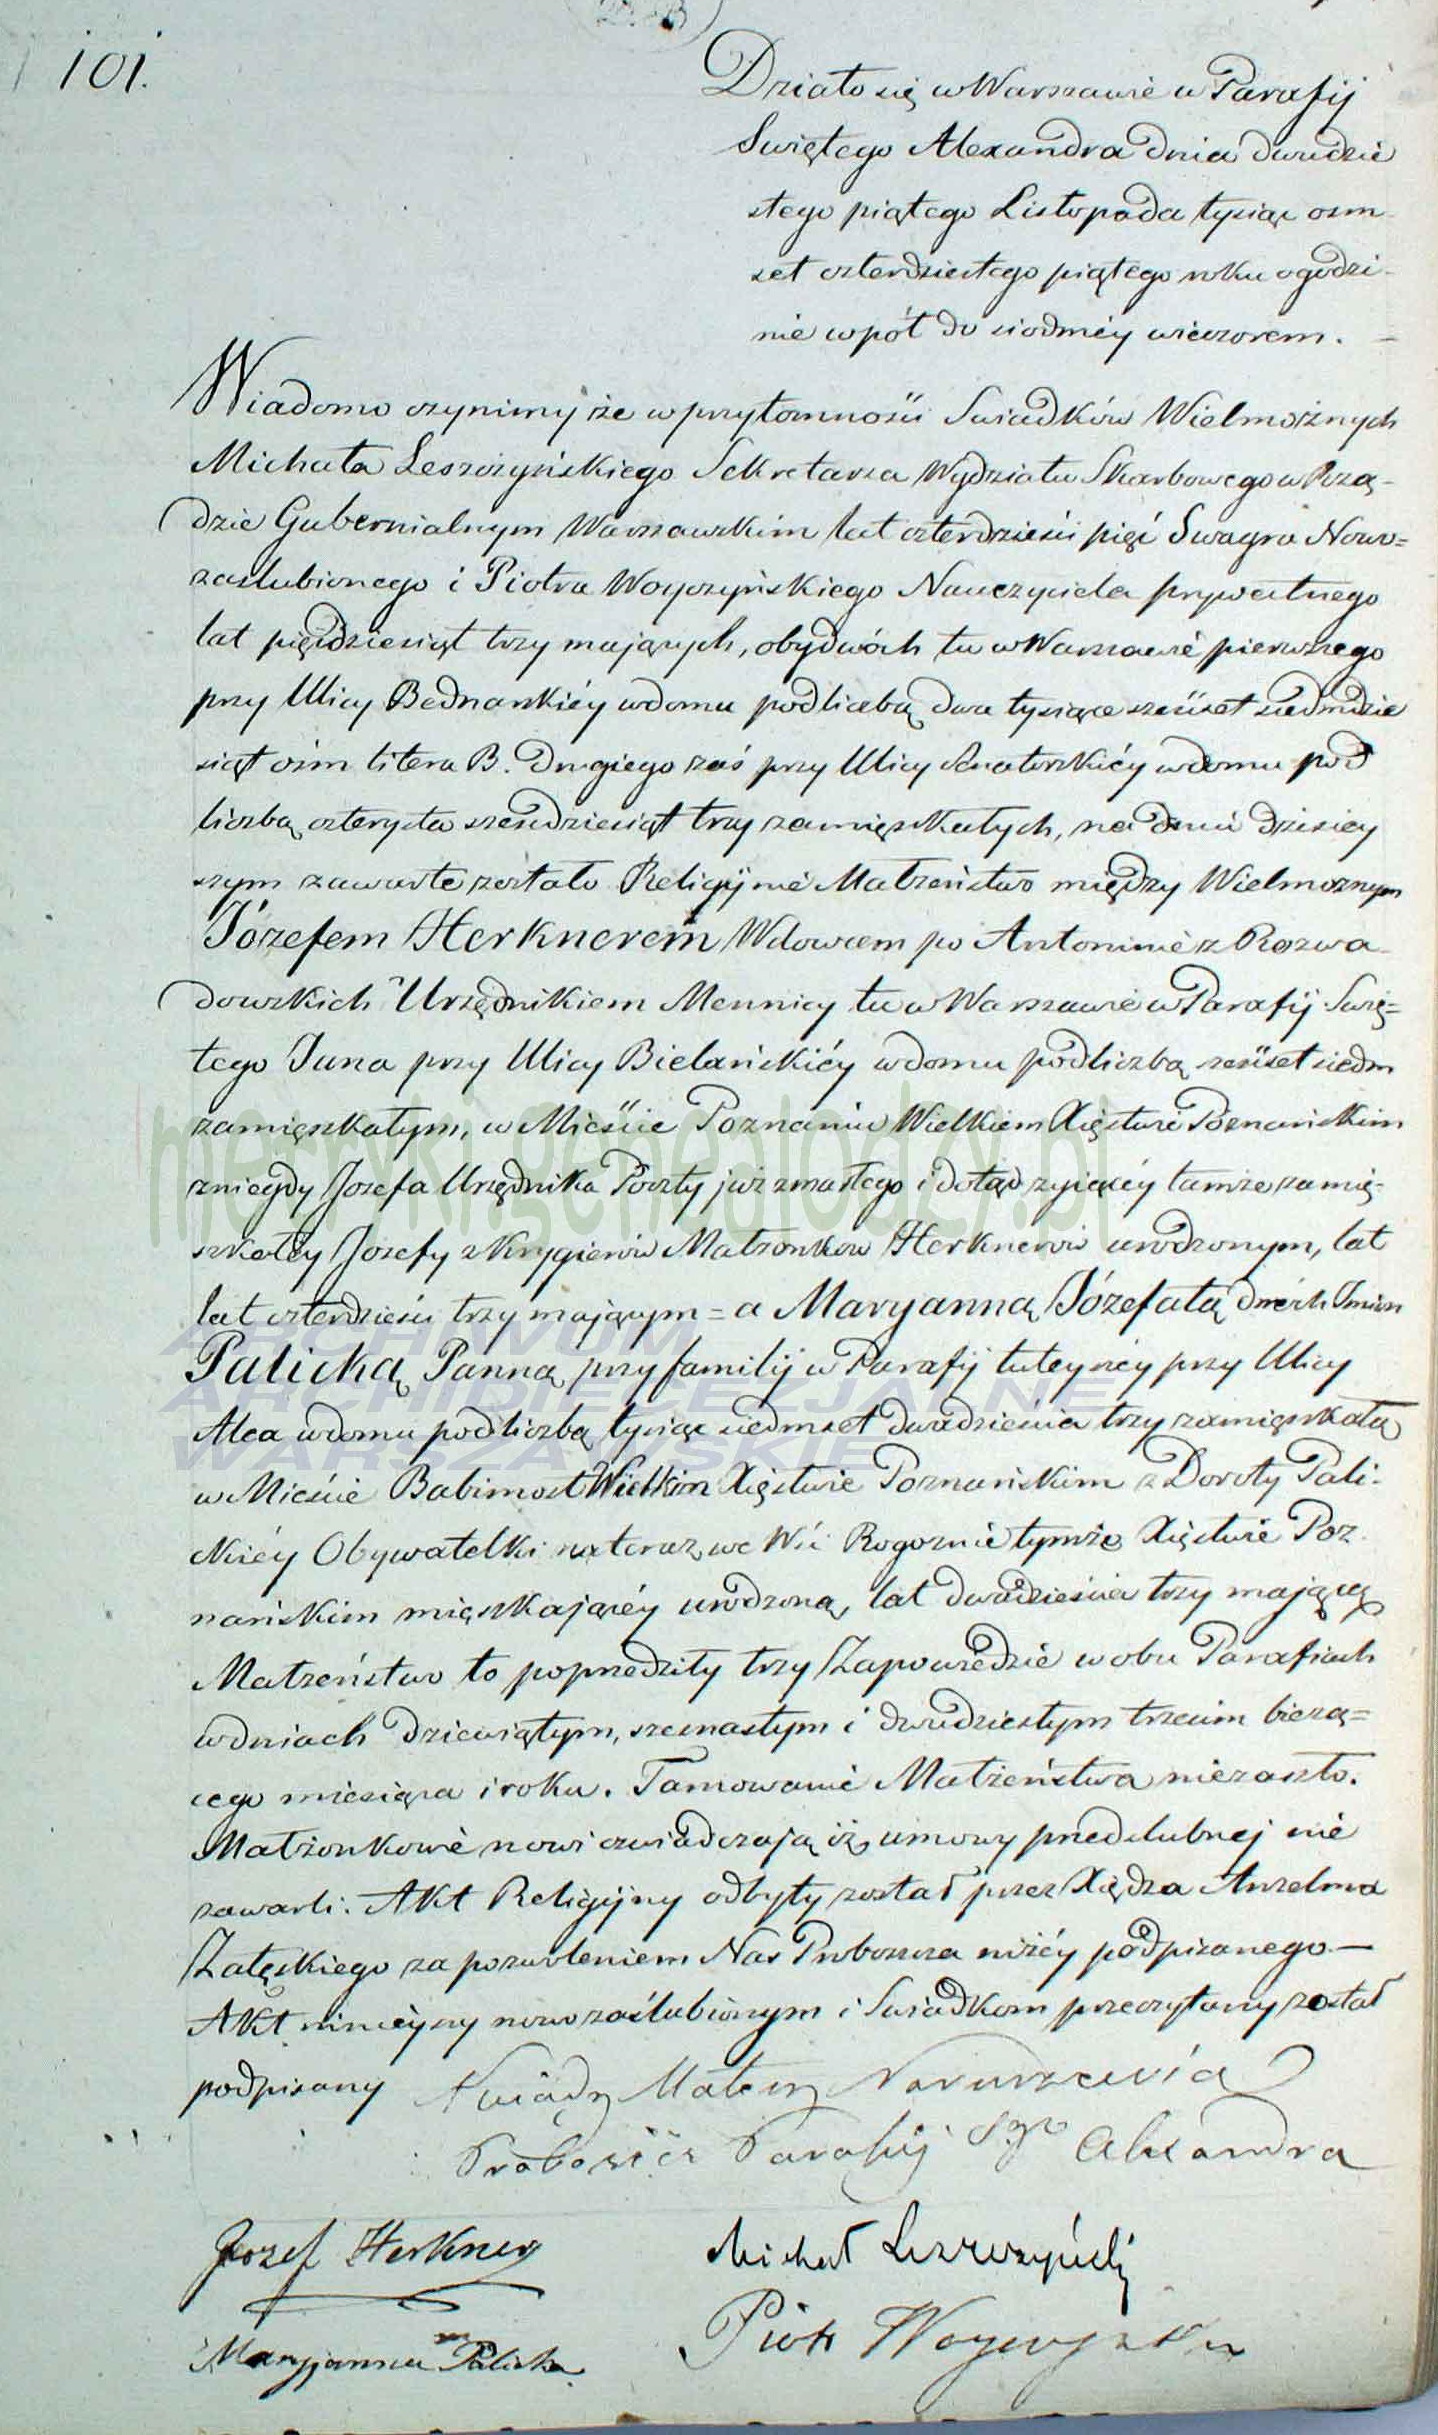 101.
Działo się w Warszawie w Parafij
Swiętego Alexandra dnia dwudzie
stego piątego Listopada tysiąc ośm
set czterdziestego piątego roku o godzi-
nie wpół do siodméy wieczorem. –
Wiadomo czynimy że w przytomności Swiadków Wielmożnych
Michała Leszczyńskiego Sekretarza Wydziału Skarbowego w Rzą-
dzie Gubernialnym Warszawskim lat czterdzieści pięć Swagra Nowo=
zaślubionego i Piotra Woyczyńskiego Nauczyciela prywatnego
lat pięćdziesiąt trzy mających, obydwóch tu w Warszawie pierwszego
przy Ulicy Bednarskiéy w domu pod liczbą dwa tysiące sześćset siedmdzie
siąt ośm litera B. drugiego zaś przy Ulicy Senatorskiéy w domu pod
liczbą czterysta sześćdziesiąt trzy zamięszkałych, na dniu dzisiey
szym zawarte zostało Religijne Małżeństwo między Wielmożnym
Józefem Herknerem Wdowcem po Antoninie z Rozwa
dowskich Urzędnikiem Mennicy tu w Warszawie w Parafij Swię=
tego Jana przy Ulicy Bielańskiéy w domu pod liczbą sześćset siedm
zamięszkałym, w Mieście Poznaniu Wielkiem Xięstwie Poznańskim
zniegdy Jozefa Urzędnika Poczty już zmarłego i dotąd żyiącéy tamże zamię-
szkałéy Jozefy z Krygierów Małżonków Herknerów urodzonym, lat
lat czterdzieści trzy mającym = a Maryanną Józefatą dwóch Imion
Palicką Panną przy familij w Parafij tuteyszéy przy Ulicy
Alea w domu pod liczbą tysiąc siedmset dwadzieścia trzy zamięszkałą
w Mieście Babimost Wielkim Xięstwie Poznańskim z Doroty Pali-
ckiéy Obywatelki na teraz we Wsi Rogoznie tymże Xięstwie Poz
nańskim mięszkającéy urodzoną, lat dwadzieścia trzy mającą
Małżeństwo to poprzedziły trzy Zapowiedzie w obu Parafiach
w dniach dziewiątym, szesnastym i dwudziestym trzecim bieżą=
cego miesiąca i roku. Tamowanie Małżeństwa niezaszło.
Małżonkowie nowi oświadczają iż umowy przedślubnej nie
zawarli. Akt Religijny odbyty został przez Xiędza Anzelma
Załęskiego za pozwoleniem Nas Proboszcza niżéy podpisanego –
Akt ninieyszy nowozaślubionym i Swiadkom przeczytany został
podpisany Xiądz Mateusz
Proboszcz Parafij Sgo Alexandra
Jozef Herkner
Michał Leszczyński
Maryjanna Palicka
Piotr Woyczyński
metryki.genealodzy.pl
ARCHIWUM
ARCHIDIECEZJALNE
WARSZAWSKIE